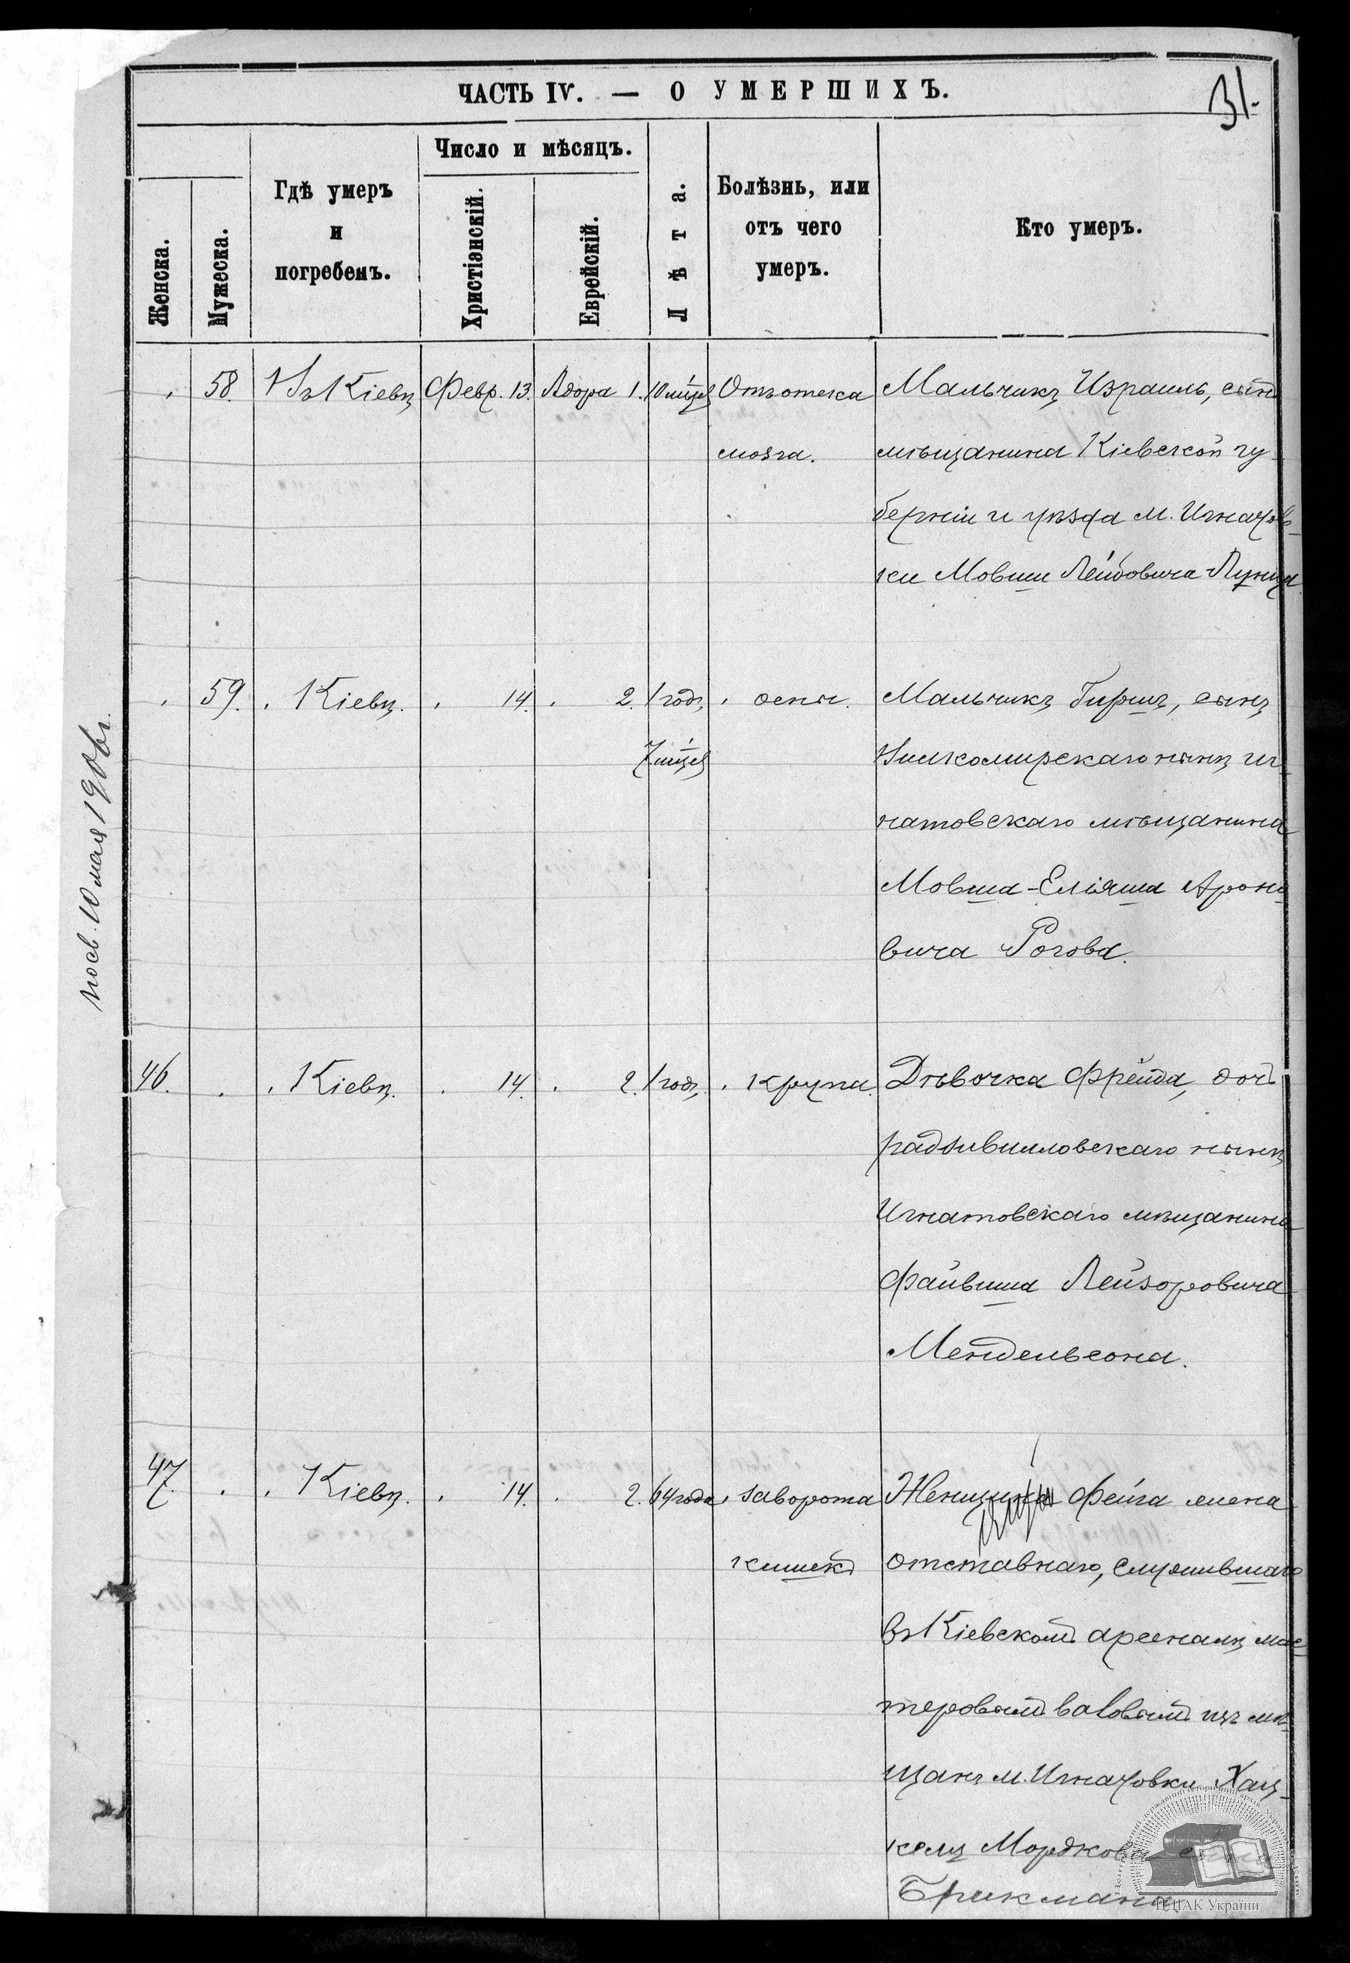 ЧАСТЬ IV. — О УМЕРШИХЪ.
31.
Женска.
Мужеска.
Гдѣ умеръ
и
погребенъ.
Число и мѣсяцъ.
Христіанскій.
Еврейскій.
Лѣта.
Болѣзнь, или
отъ чего
умеръ.
Кто умеръ.
58. Въ Кіевѣ Февр. 13. Адора 1. 10 мѣцев Отъ отека Мальчикъ Израиль, сынъ
мозга. мѣщанина Кіевской гу-
берніи и уѣзда м. Игнатов-
ки Мовши Лейбовича
59. Кіевѣ. 14. 2. 1 годъ оспы. Мальчикъ Гиршъ, сынъ
7 мѣцев Вилкомирскаго нынѣ иг-
натовскаго мѣщанина
Мовша-Еліяша Ароно-
вича Рогова.
46. Кіевѣ. 14. 2. 1 годъ. крупа. Дѣвочка Фрейда, дочь
радзивилловскаго нынѣ
Игнатовскаго мѣщанина
Файвиша Лейзоровича
Мендельсона.
47. Кіевѣ. 14. 2. 64 года заворота Женщина Фейга жена
кишекъ отставнаго, служившаго
въ Кіевскомъ арсеналѣ мас-
теровымъ изъ мѣ-
щанъ м. Игнатовки Хац-
келя
Брикмана
посв. 10 мая 1906 г.
ЦДІАК України